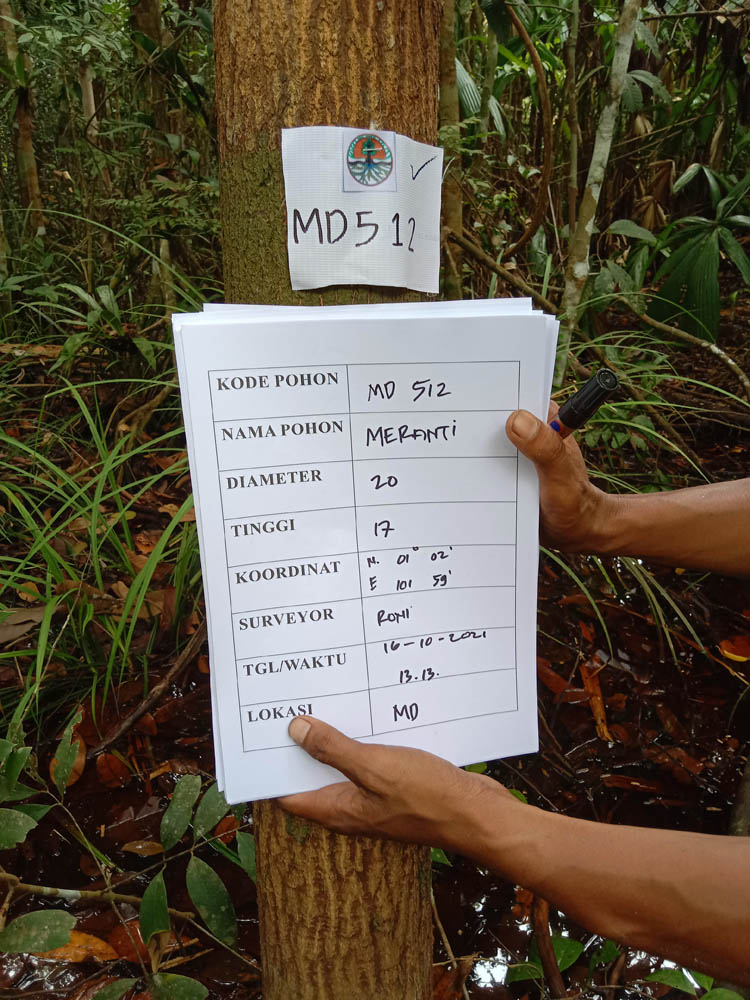 MD512
KODE POHON MD 512
NAMA POHON MERANTi
DIAMETER 20
TINGGI 17
KOORDINAT N. 01° 02'
E 101 59'
SURVEYOR RONI
TGL/WAKTU 16-10-2021
13.13.
LOKASI MD